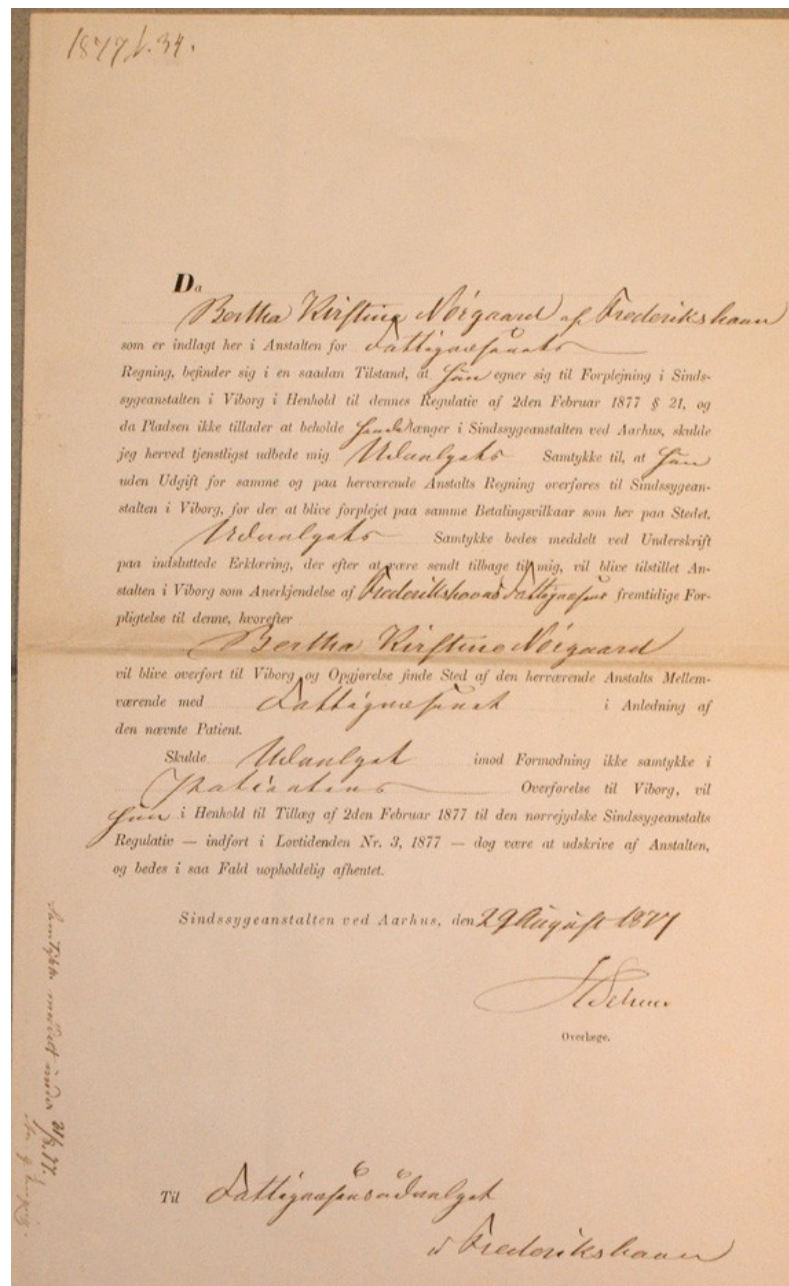 1877/1.34.
Da
Bertha Kirstine Nörgaard af Frederikshavn
som er indlagt her i Anstalten for Fattigvæsenets
Regning, befinder sig i en saadan Tilstand, at hun egner sig til Forplejning i Sinds-
sygeanstalten i Viborg i Henhold til dennes Regulativ af 2den Februar 1877 § 21, og
da Pladsen ikke tillader at beholde hende længer i Sindssygeanstalten ved Aarhus, skulde
jeg herved tjenstligst udbede mig Udvalgets Samtykke til, at hun
uden Udgift for samme og paa herværende Anstalts Regning overføres til Sindssygean-
stalten i Viborg, for der at blive forplejet paa samme Betalingsvilkaar som her paa Stedet.
Udvalgets Samtykke bedes meddelt ved Underskrift
paa indsluttede Erklæring, der efter at være sendt tilbage til mig, vil blive tilstillet An-
stalten i Viborg som Anerkjendelse af Frederikshavns Fattigvæsens fremtidige For-
pligtelse til denne, hvorefter
Bertha Kirstine Nörgaard
vil blive overført til Viborg og Opgjørelse finde Sted af den herværende Anstalts Mellem-
værende med Fattigvæsenet i Anledning af
den nævnte Patient.
Skulde Udvalget imod Formodning ikke samtykke i
Patientens Overførelse til Viborg, vil
hun i Henhold til Tillæg af 2den Februar 1877 til den nørrejydske Sindssygeanstalts
Regulativ — indført i Lovtidenden Nr. 3, 1877 — dog være at udskrive af Anstalten,
og bedes i saa Fald uopholdelig afhentet.
Sindssygeanstalten ved Aarhus, den 29 August 1877
Overlæge.
Samtykke meddelt under 31/8.77.
Til Fattigvæsensudvalget
i Frederikshavn